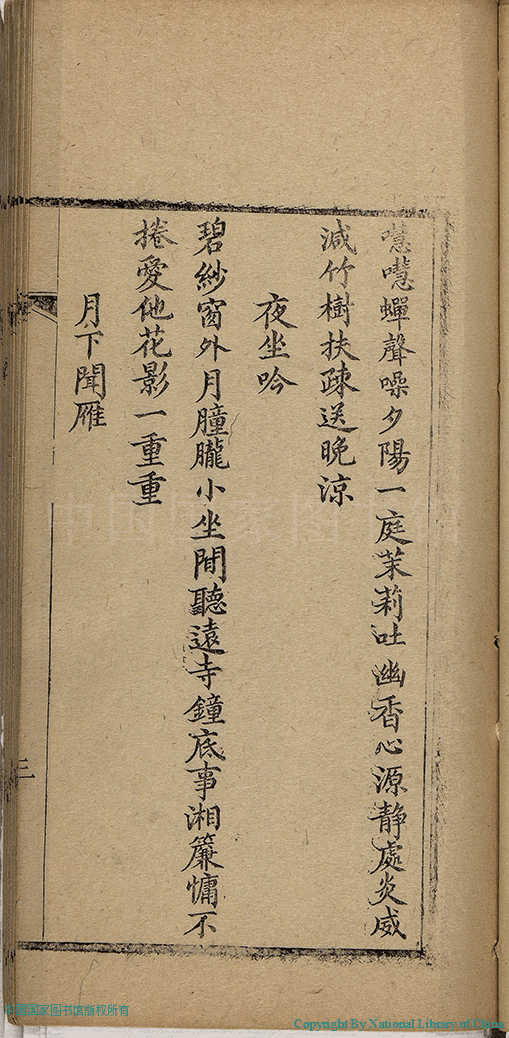 嘒嘒蟬聲噪夕陽一庭茉莉吐幽香心源靜處炎威
減竹樹扶疎送晚涼
夜坐吟
碧紗窗外月朣朧小坐閒聽遠寺鐘底事湘簾慵不
捲愛他花影一重重
月下聞雁
三
中国国家图书馆
中国国家图书馆版权所有
Copyright By National Library of China